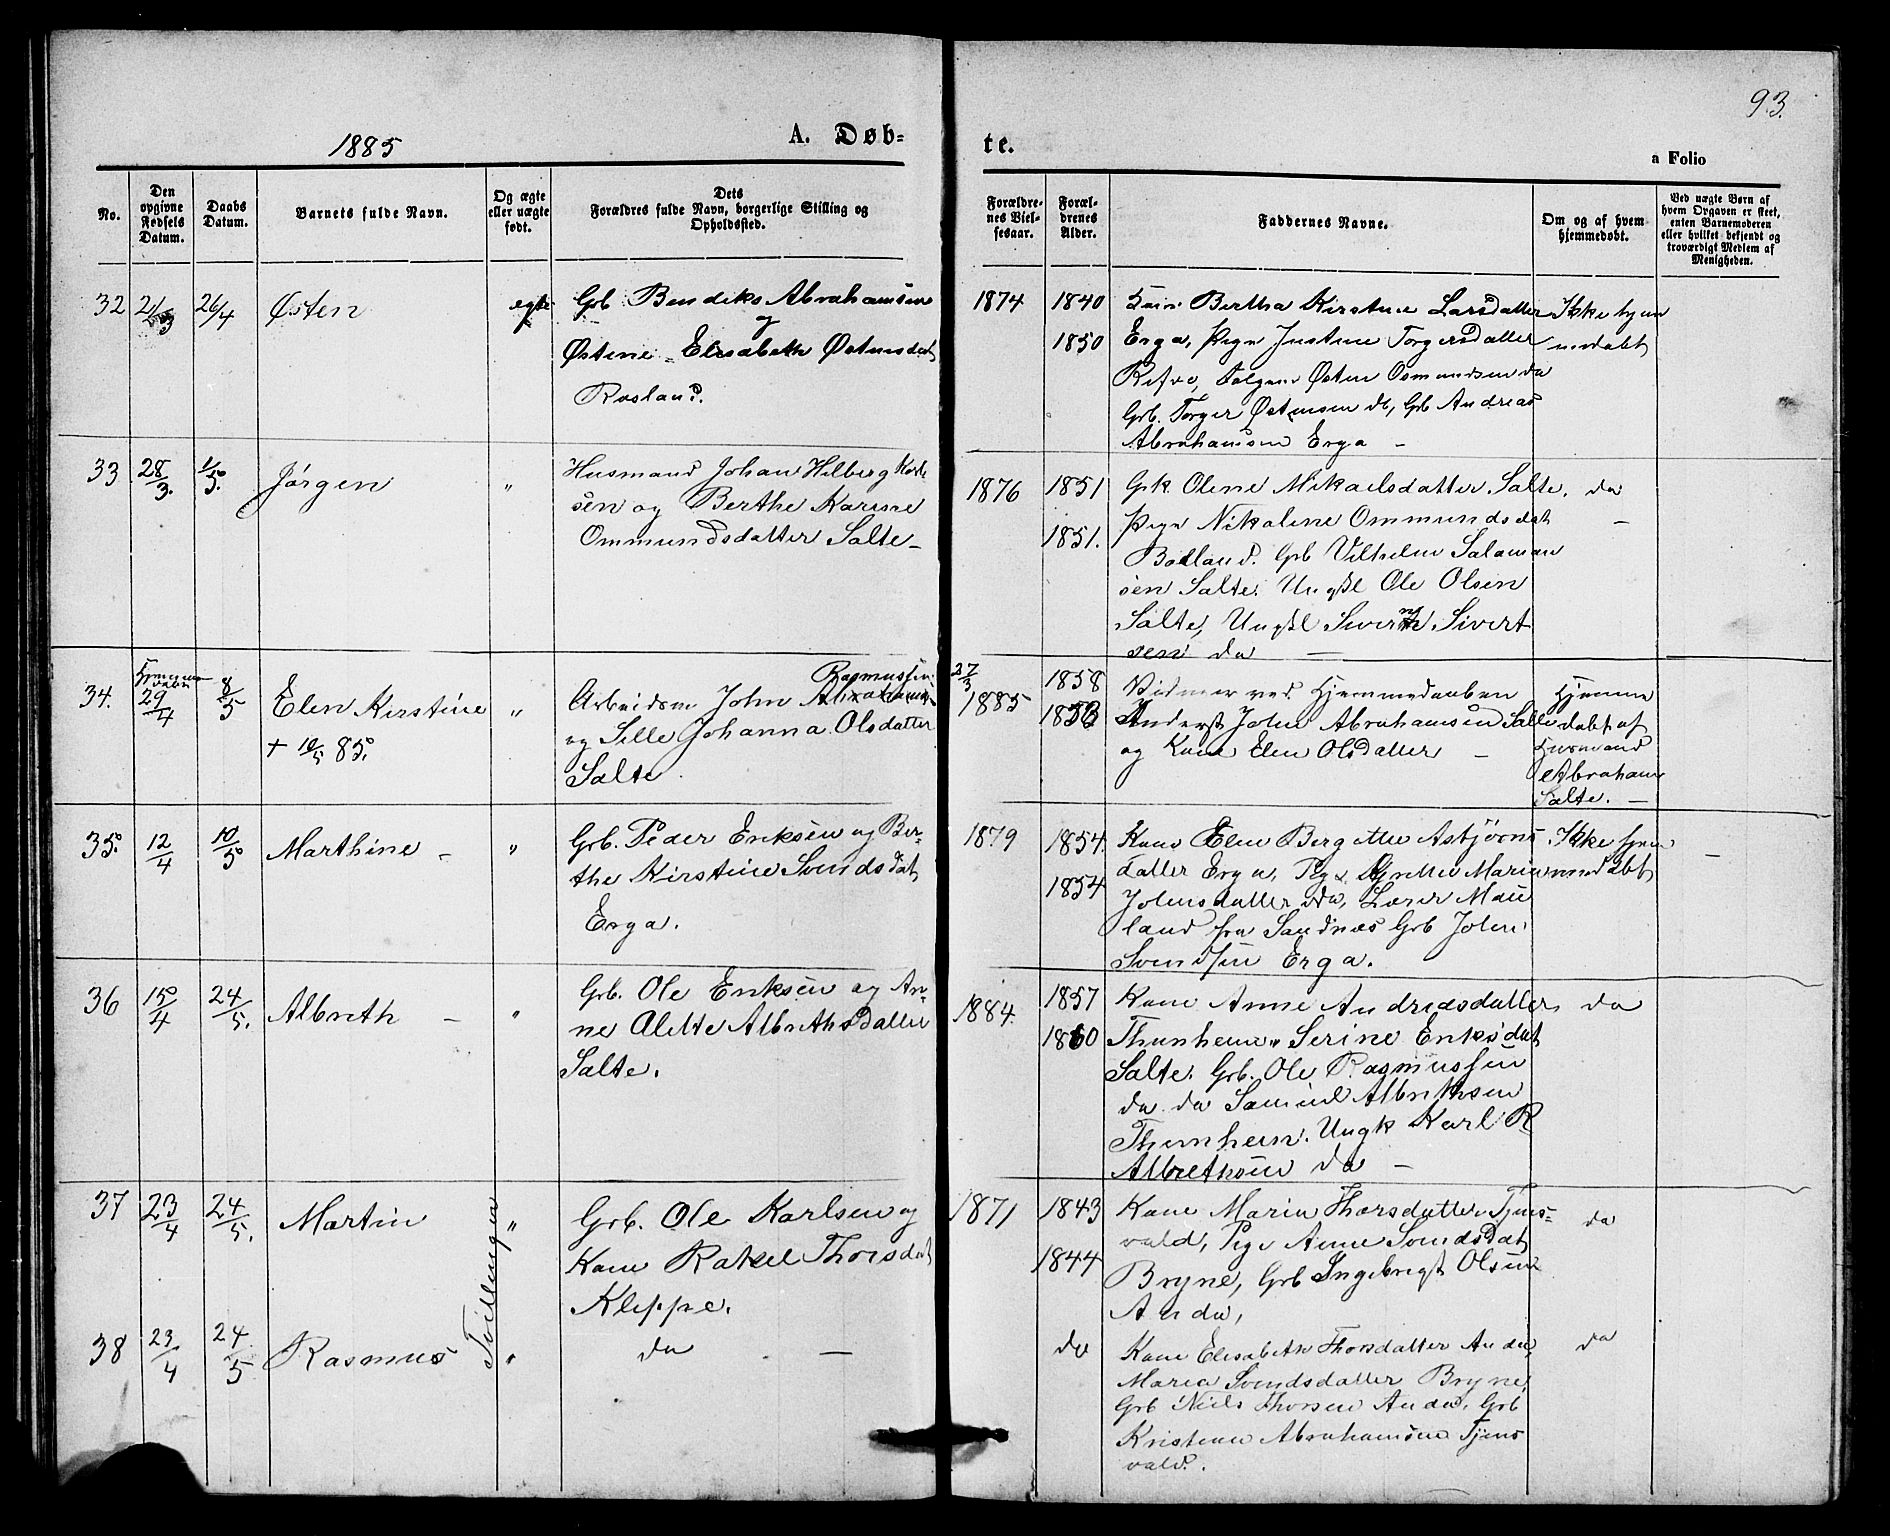 93.
1885
A. Døb-
te.
a Folio
No.
Den opgivne Fødsels Datum.
Daabs Datum.
Barnets fulde Navn.
Og ægte eller uægte født.
Dets
Forældres fulde Navn, borgerlige Stilling og
Opholdssted.
Forældrenes Vielsesaar.
Forældrenes Alder.
Faddernes Navne.
Om og af hvem hjemmedøbt.
Ved uægte Børn af
hvem Opgaven er skeet,
enten Barnemoderen
eller hvilket bekjendt og
troværdigt Medlem af
Menigheden.
32 21/3 26/4 Østen egte Grb Bendiks Abrahamsen
og
Østine Elisabeth Østensdat
Rosland.
1874 1840 1850
Bertha Kirstine Larsdatter
Erga, Pige Justine Torgersdatter
Refve, Østen Osmundsen do
Grb. Torger Østensen do, Grb Andreas
Abrahamsen Erga –
Ikke hjem
medøbt
33 28/3. 1/5. Jørgen " Husmand Johan Hilberg Karl-
sen og Berthe Karine
Ommundsdatter Salte –
1876 1851 1851.
Gk. Olene Mikaelsdatter Salte.
Pige Nikoline Ommundsdat
Bodland. Grb Vilhelm Salamon
sen Salte. Ungkl Ole Olsen
Salte, Ungkl Sivert Sivert
sen do –
do –
34. Hjemme døbt 29/4 8/5 Elen Kirstine " Arbeidsm John Abrahams Rasmussen
+ 10/5 85.
og Sille Johanna Olsdatter
Salte
27/3 1885 1858 1853
Vidner ved Hjemmedaaben
John Abrahamsen Salte
og Kone Elen Olsdatter –
Hjemme
døbt af
Husmand
Abraham
Salte. –
35. 12/4 10/5 Marthine – " Grb. Peder Eriksen og Ber-
the Kirstine Svendsdat
Erga.
1879 1854. 1854
Kone Elen Bergitte Asbjørns
datter Erga, Pige Grethe Marie
Johnsdatter do, Lærer Mau
land fra Sandnæs Grb John
Svendsen Erga.
Ikke hjem
medøbt –
36 15/4 24/5. Albreth – " Grb. Ole Eriksen og An-
ne Alette Albrethsdatter
Salte.
1884. 1857 1860
Kone Anne Andreasdatter
Thunheim " Serine Eriksdat
Salte. Grb. Ole Rasmussen
do do Samuel Albrethsen
Thunheim. Ungk Karl R
Albrethsen do –
do
37 23/4 24/5. Martin " Grb. Ole Karlsen og
Kone Rakel Thorsdat
Kleppe.
Tvillinger
1871 1843 1844
Kone Maria Thorsdatter Tjens-
vold, Pige Anne Svendsdat
Bryne, Grb Ingebregt Olsen
Anda,
do
38 23/4 24/5 Rasmus " do –
do
Kone Elisabeth Thorsdatter Anda,
Maria Svendsdatter Bryne,
Grb Niels Thorsen Anda, Grb
Kristian Abrahamsen Tjens
vold.
do